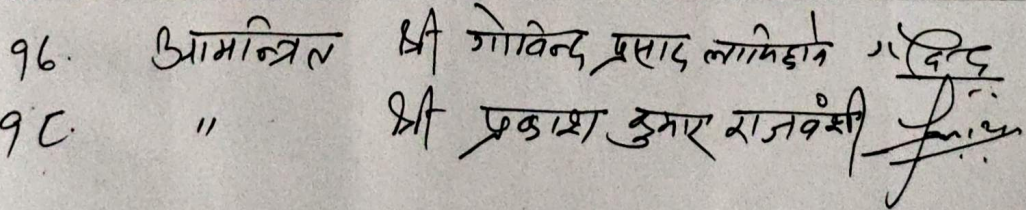 १७. आमन्त्रित श्री गोविन्द प्रसाद लामिछाने
१८. " श्री प्रकाश कुमार राजवंशी